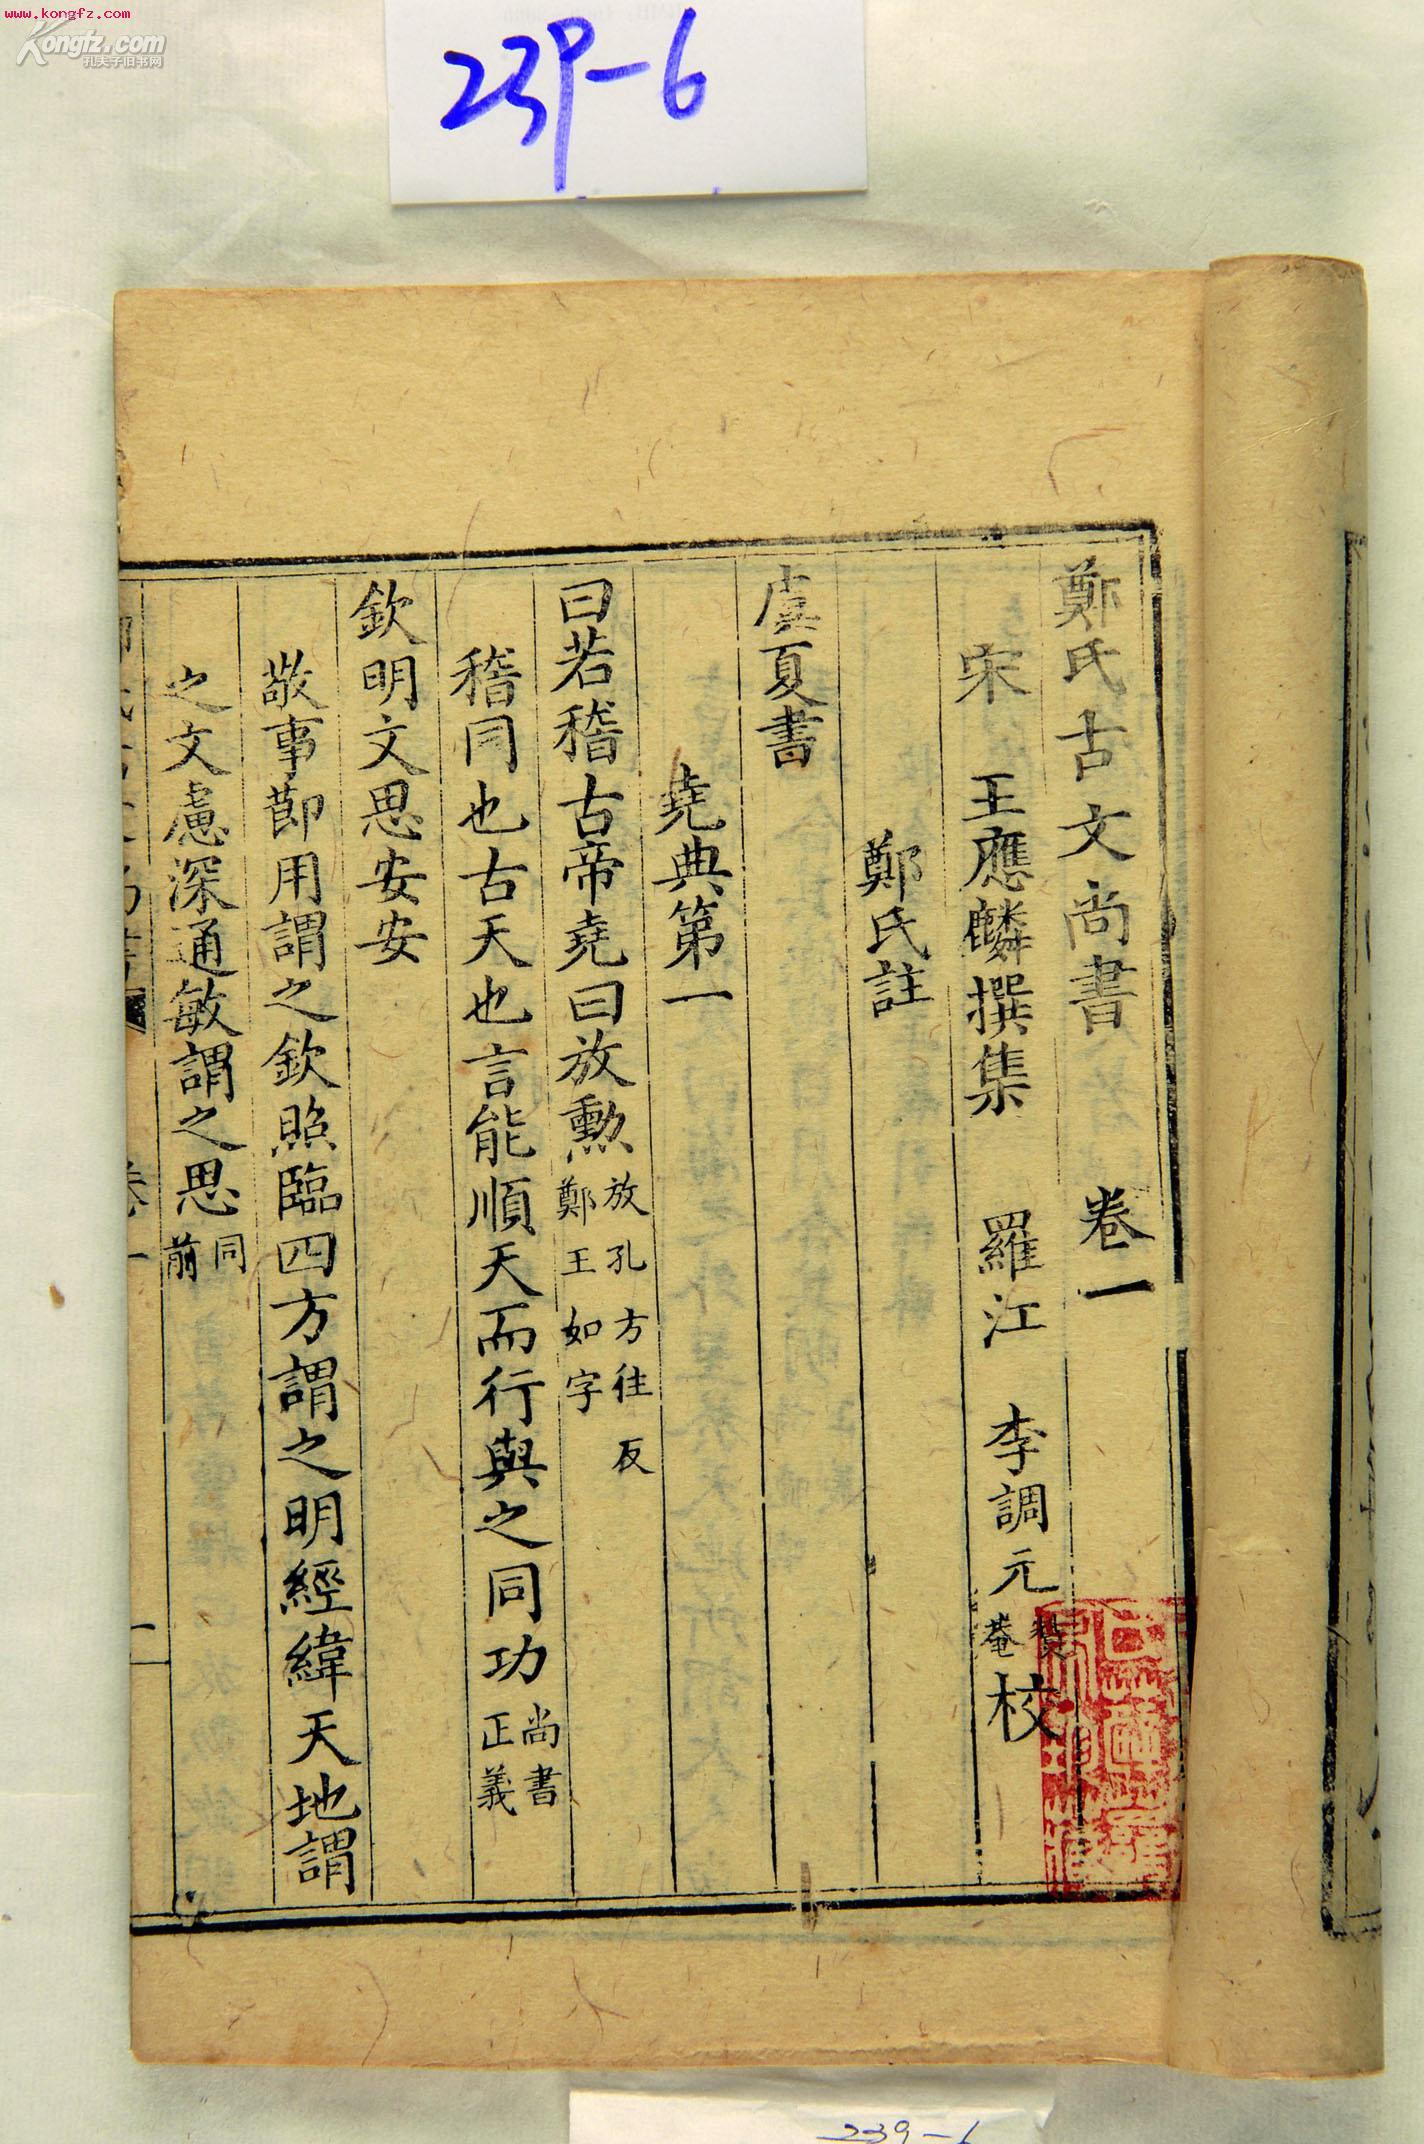 www.kongfz.com
Kongfz.com
孔夫子旧书网
239-6
鄭氏古文尚書 卷一
宋 王應麟撰集 羅江 李調元贊菴校
鄭氏註
虞夏書
堯典第一
曰若稽古帝堯曰放勳放孔方往反鄭王如字
稽同也古天也言能順天而行與之同功尚書正義
欽明文思安安
敬事節用謂之欽照臨四方謂之明經緯天地謂
之文慮深通敏謂之思同前
卷一
一
239-6